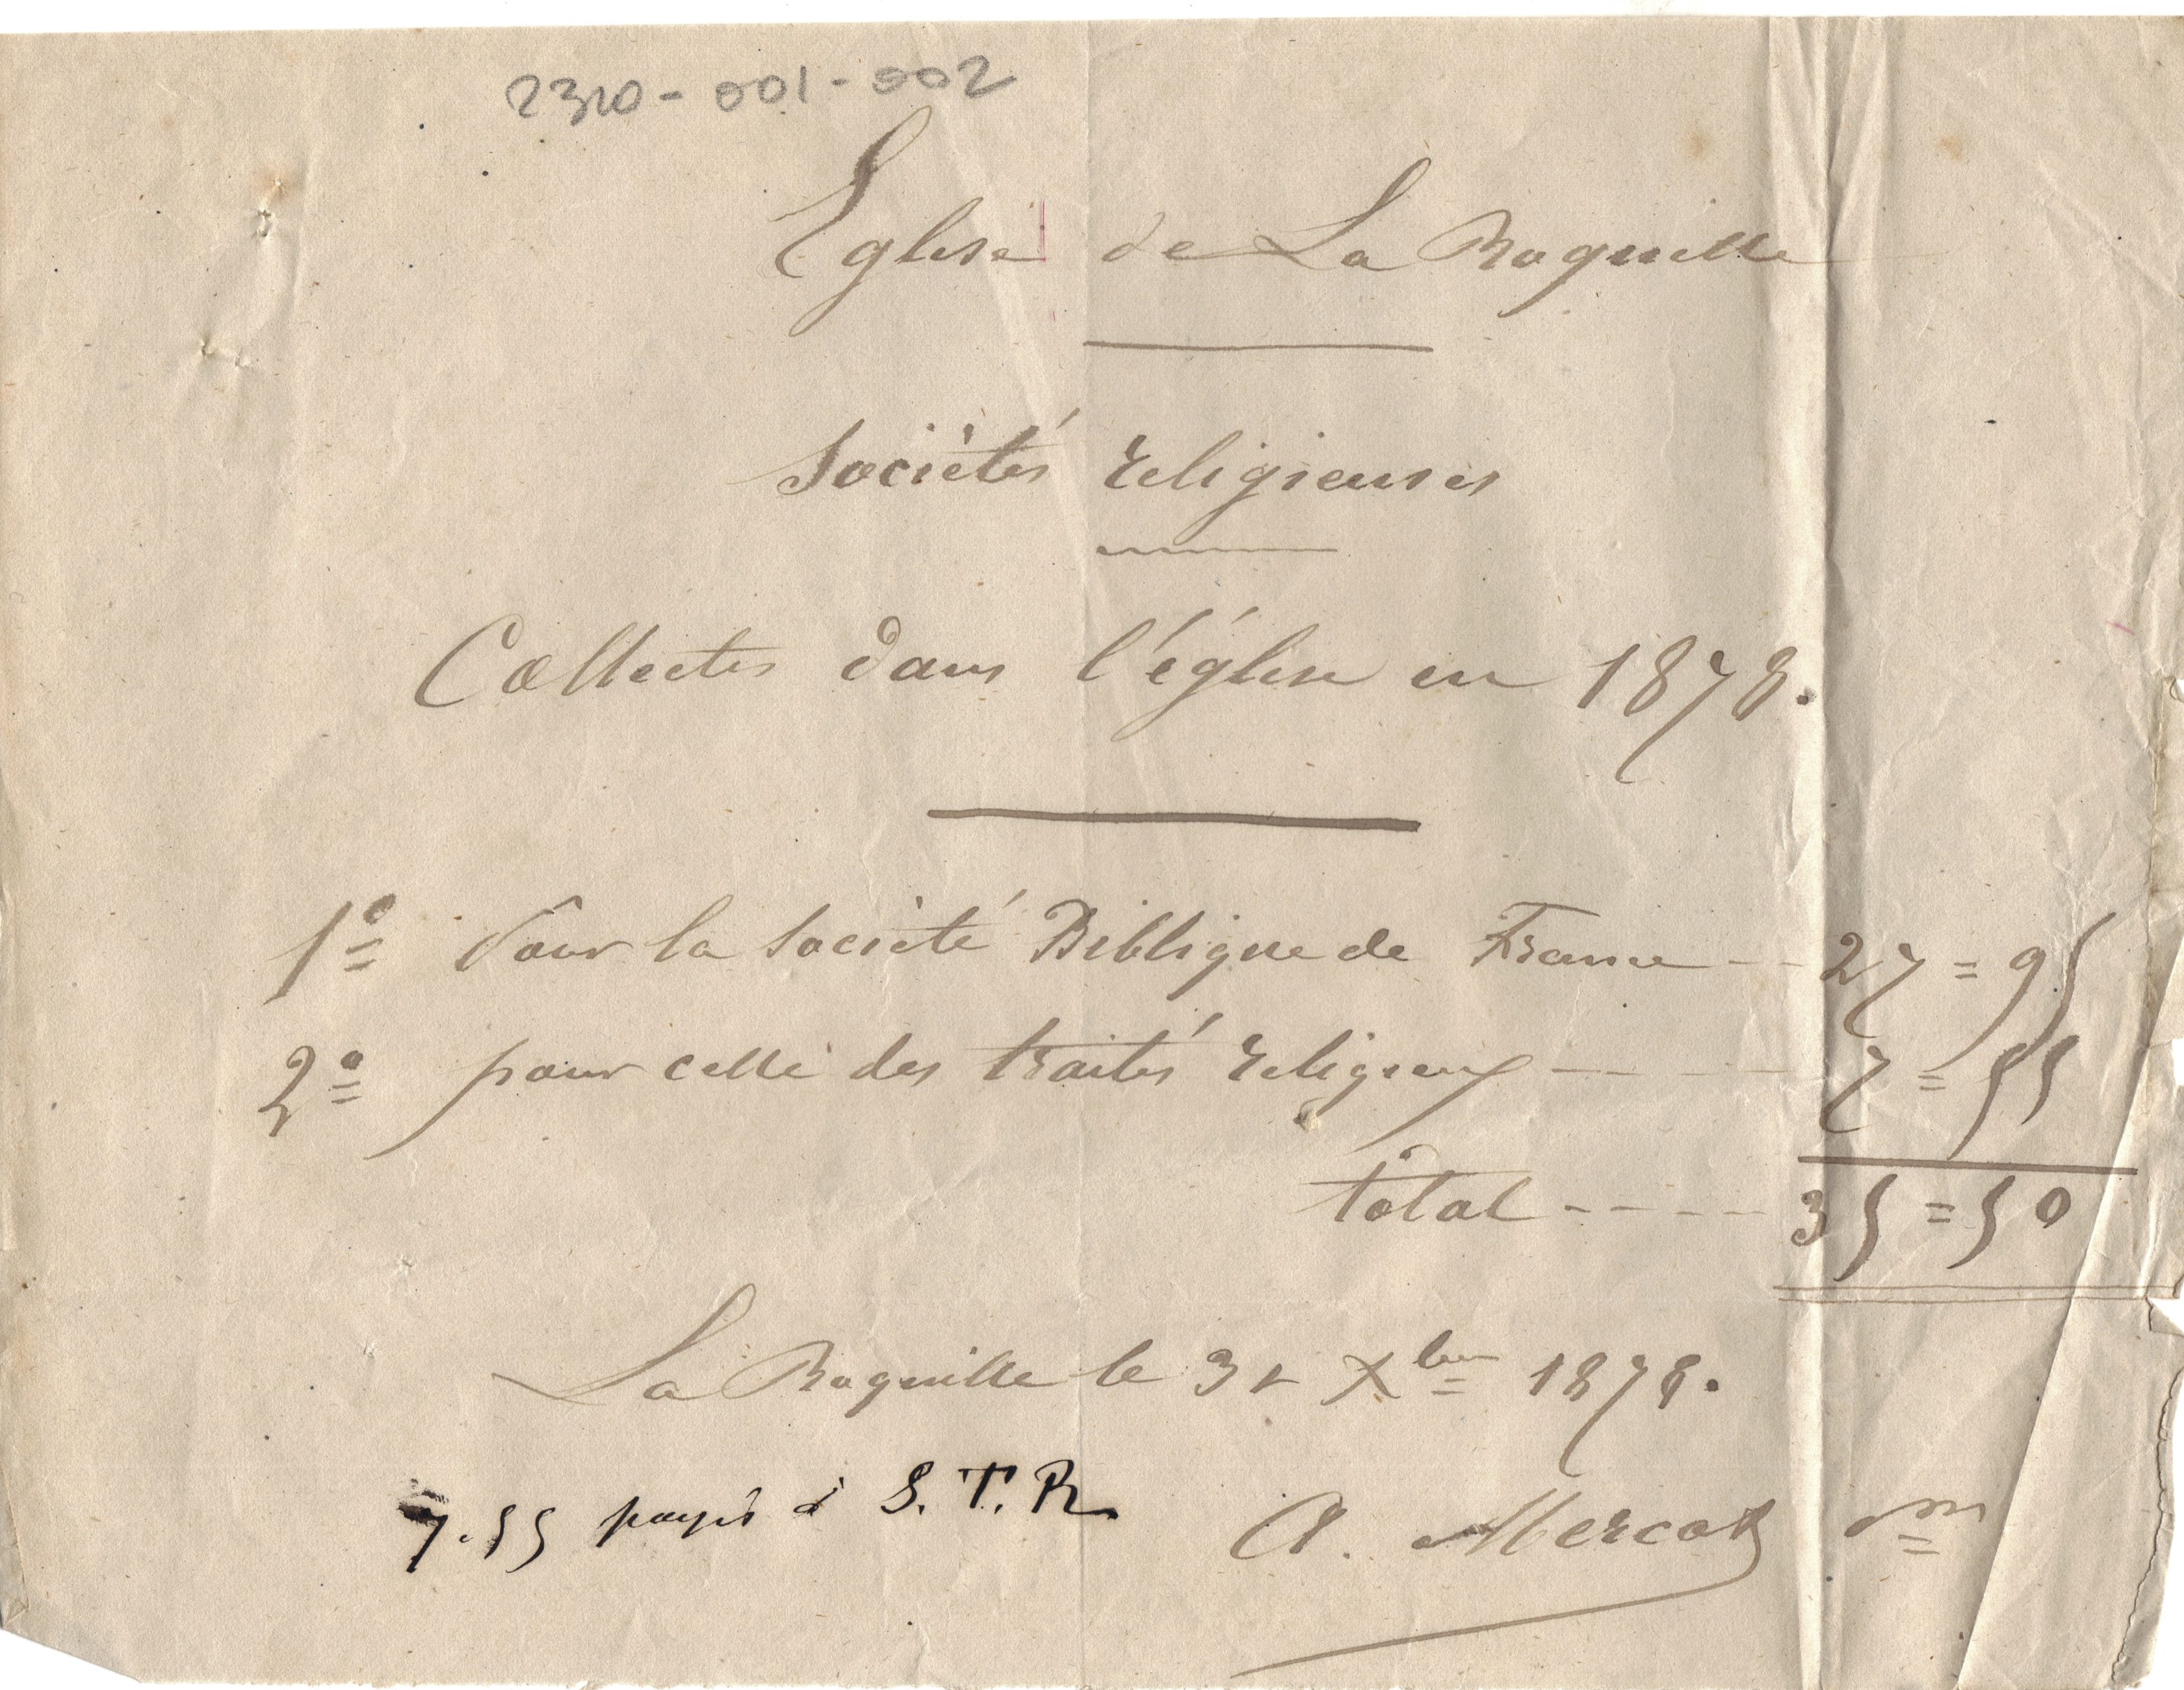 2310-001-002
Eglise de La Roquille
Sociétés religieuses
Collectes dans l'église en 1878.
1º Pour la Société Biblique de France -- 27 = 95
2º pour celle des traités religieux ---- 7 = 55
total ---- 35 = 50
La Roquille le 31 Xbre 1878.
7.55 payés à S. T. R
A. Mercat